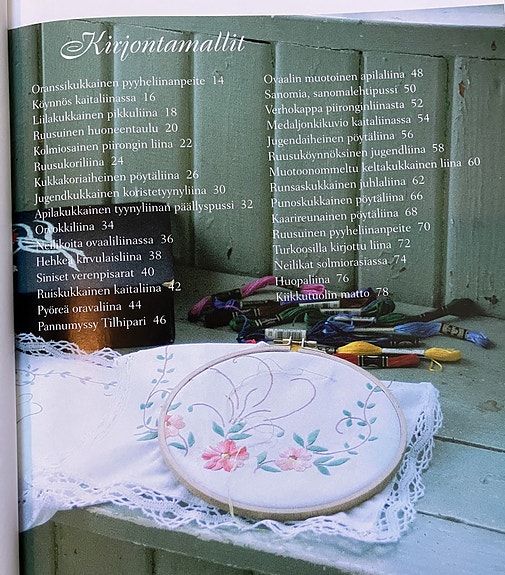 Kirjontamallit
Oranssikukkainen pyyheliinanpeite 14
Köynnös kaitaliinassa 16
Liilakukkainen pikkuliina 18
Ruusuinen huoneentaulu 20
Kolmiosainen piirongin liina 22
Ruusukoriliina 24
Kukkakoriaiheinen pöytäliina 26
Jugendkukkainen koristetyynyliina 30
Apilakukkainen tyynyliinan päällyspussi 32
Orvokkiliina 34
Neilikoita ovaaliliinassa 36
Hehkeä kirvulaisliina 38
Siniset verenpisarat 40
Ruiskukkainen kaitaliina 42
Pyöreä oravaliina 44
Pannumyssy Tilhipari 46
Ovaalin muotoinen apilaliina 48
Sanomia, sanomalehtipussi 50
Verhokappa piironginliinasta 52
Medaljonkikuvio kaitaliinassa 54
Jugendaiheinen pöytäliina 56
Ruusuköynnöksinen jugendliina 58
Muotoonommeltu keltakukkainen liina 60
Runsaskukkainen juhlaliina 62
Punoskukkainen pöytäliina 66
Kaarireunainen pöytäliina 68
Ruusuinen pyyheliinanpeite 70
Turkoosilla kirjottu liina 72
Neilikat solmiorasiassa 74
Huopaliina 76
Kiikkutuolin matto 78